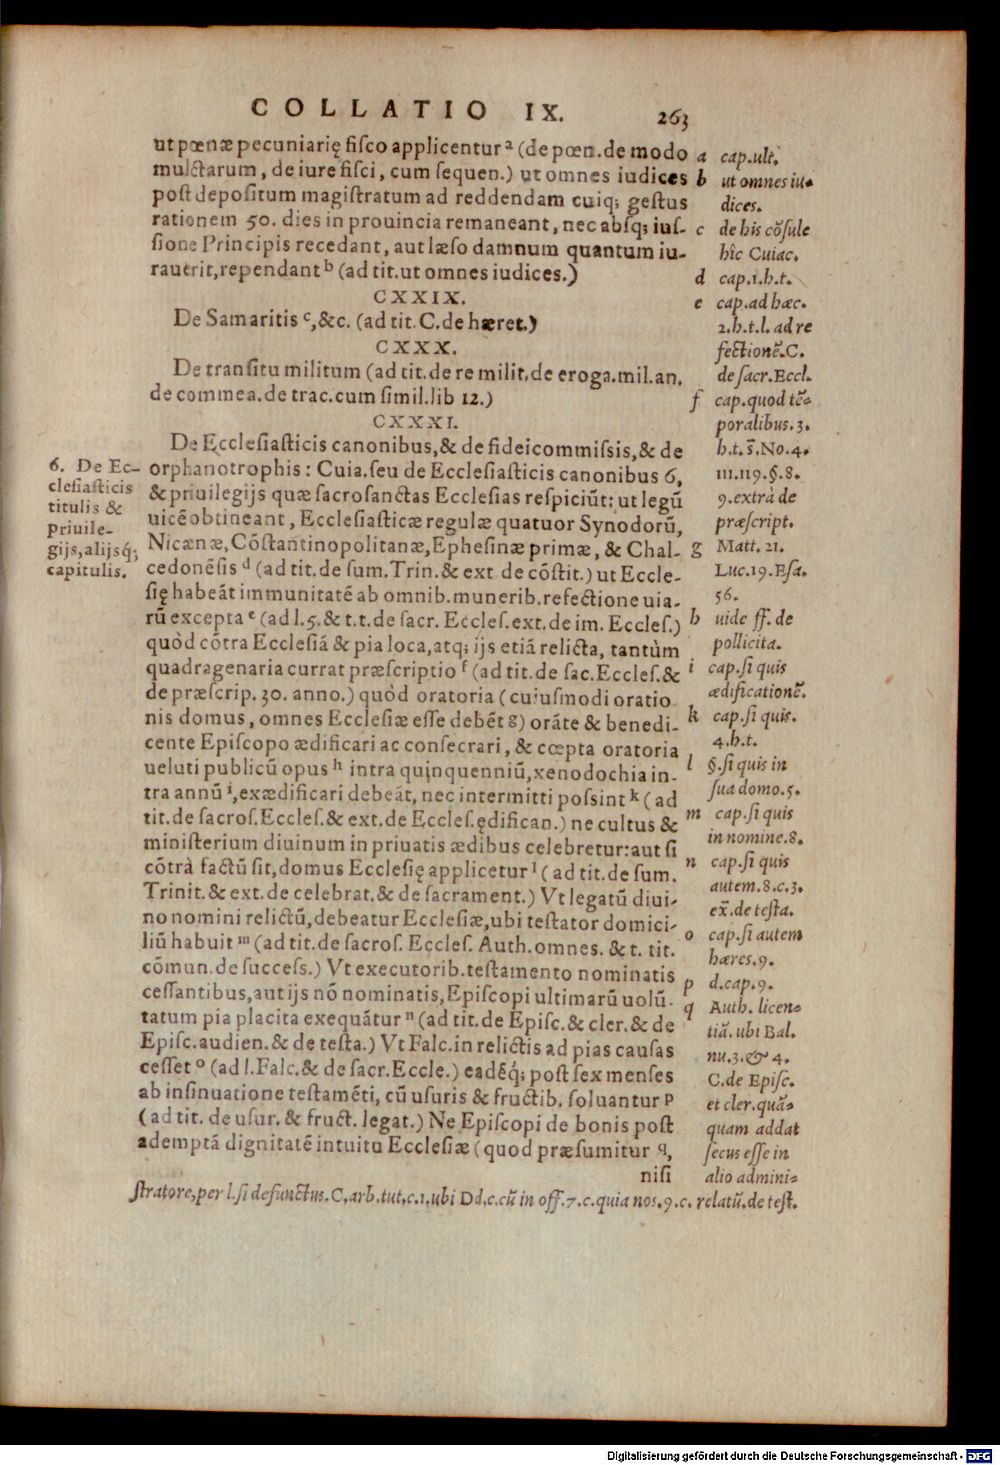 COLLATIO IX. 263
ut pœnæ pecuniarię fisco applicentur ª (de pœn. de modo
mulctarum, de iure fisci, cum sequen.) ut omnes iudices
post depositum magistratum ad reddendam cuiq; gestus
rationem 50. dies in prouincia remaneant, nec absq; ius-
sione Principis recedant, aut læso damnum quantum iu-
rauerit, rependant ᵇ (ad tit. ut omnes iudices.)
CXXIX.
De Samaritis ᶜ, &c. (ad tit. C. de hæret.)
CXXX.
De transitu militum (ad tit. de re milit. de eroga. mil. an.
de commea. de trac. cum simil. lib 12.)
CXXXI.
De Ecclesiasticis canonibus, & de fideicommissis, & de
orphanotrophis: Cuia. seu de Ecclesiasticis canonibus 6,
& priuilegijs quæ sacrosanctas Ecclesias respiciũt: ut legũ
uicẽ obtineant, Ecclesiasticæ regulæ quatuor Synodorũ,
Nicænæ, Cõstantinopolitanæ, Ephesinæ primæ, & Chal-
cedonẽsis ᵈ (ad tit. de sum. Trin. & ext de cõstit.) ut Eccle-
się habeãt immunitatẽ ab omnib. munerib. refectione uia-
rũ excepta ᵉ (ad l. 5. & t. t. de sacr. Eccles. ext. de im. Eccles.)
quòd cõtra Ecclesiã & pia loca, atq; ijs etiã relicta, tantùm
quadragenaria currat præscriptio ᶠ (ad tit. de sac. Eccles. &
de præscrip. 30. anno.) quòd oratoria (cuiusmodi oratio
nis domus, omnes Ecclesiæ esse debẽt ᵍ) orãte & benedi-
cente Episcopo ædificari ac consecrari, & cœpta oratoria
ueluti publicũ opus ʰ intra quinquenniũ, xenodochia in-
tra annũ ⁱ, exædificari debeãt, nec intermitti possint ᵏ (ad
tit. de sacros. Eccles. & ext. de Eccles. ędifican.) ne cultus &
ministerium diuinum in priuatis ædibus celebretur: aut si
cõtrà factũ sit, domus Ecclesię applicetur ˡ (ad tit. de sum.
Trinit. & ext. de celebrat. & de sacrament.) Vt legatũ diui-
no nomini relictũ, debeatur Ecclesiæ, ubi testator domici-
liũ habuit ᵐ (ad tit. de sacros. Eccles. Auth. omnes. & t. tit.
cõmun. de success.) Vt executorib. testamento nominatis
cessantibus, aut ijs nõ nominatis, Episcopi ultimarũ uolũ-
tatum pia placita exequãtur ⁿ (ad tit. de Episc. & cler. & de
Episc. audien. & de testa.) Vt Falc. in relictis ad pias causas
cesset ᵒ (ad l. Falc. & de sacr. Eccle.) eadẽq́; post sex menses
ab insinuatione testamẽti, cũ usuris & fructib. soluantur ᵖ
(ad tit. de usur. & fruct. legat.) Ne Episcopi de bonis post
ademptã dignitatẽ intuitu Ecclesiæ (quod præsumitur q,
nisi
6. De Ec-
clesiasticis
titulis &
priuile-
gijs, alijsq́;
capitulis.
a cap. ult.
b ut omnes iu-
dices.
c de his cõsule
hîc Cuiac.
d cap. 1. h. t.
e cap. ad hæc.
2. h. t. l. ad re
fectionẽ. C.
de sacr. Eccl.
f cap. quod tẽ-
poralibus. 3.
h. t. s̄. No. 4.
111. 119. §. 8.
9. extrà de
præscript.
g Matt. 21.
Luc. 19. Esa.
56.
h uide ff. de
pollicita.
i cap. si quis
ædificationẽ.
k cap. si quis.
4. h. t.
l §. si quis in
sua domo. 5.
m cap. si quis
in nomine. 8.
n cap. si quis
autem. 8. c. 3.
ex̄. de testa.
o cap. si autem
hæres. 9.
p d. cap. 9.
q Auth. licen-
tiã. ubi Bal.
nu. 3. & 4.
C. de Episc.
et cler. quã-
quam addat
secus esse in
alio admini-
stratore, per l. si defunctus. C. arb. tut. c. 1. ubi Dd. c. cũ in off. 7. c. quia nos. 9. c. relatũ. de test.
Digitalisierung gefördert durch die Deutsche Forschungsgemeinschaft - DFG